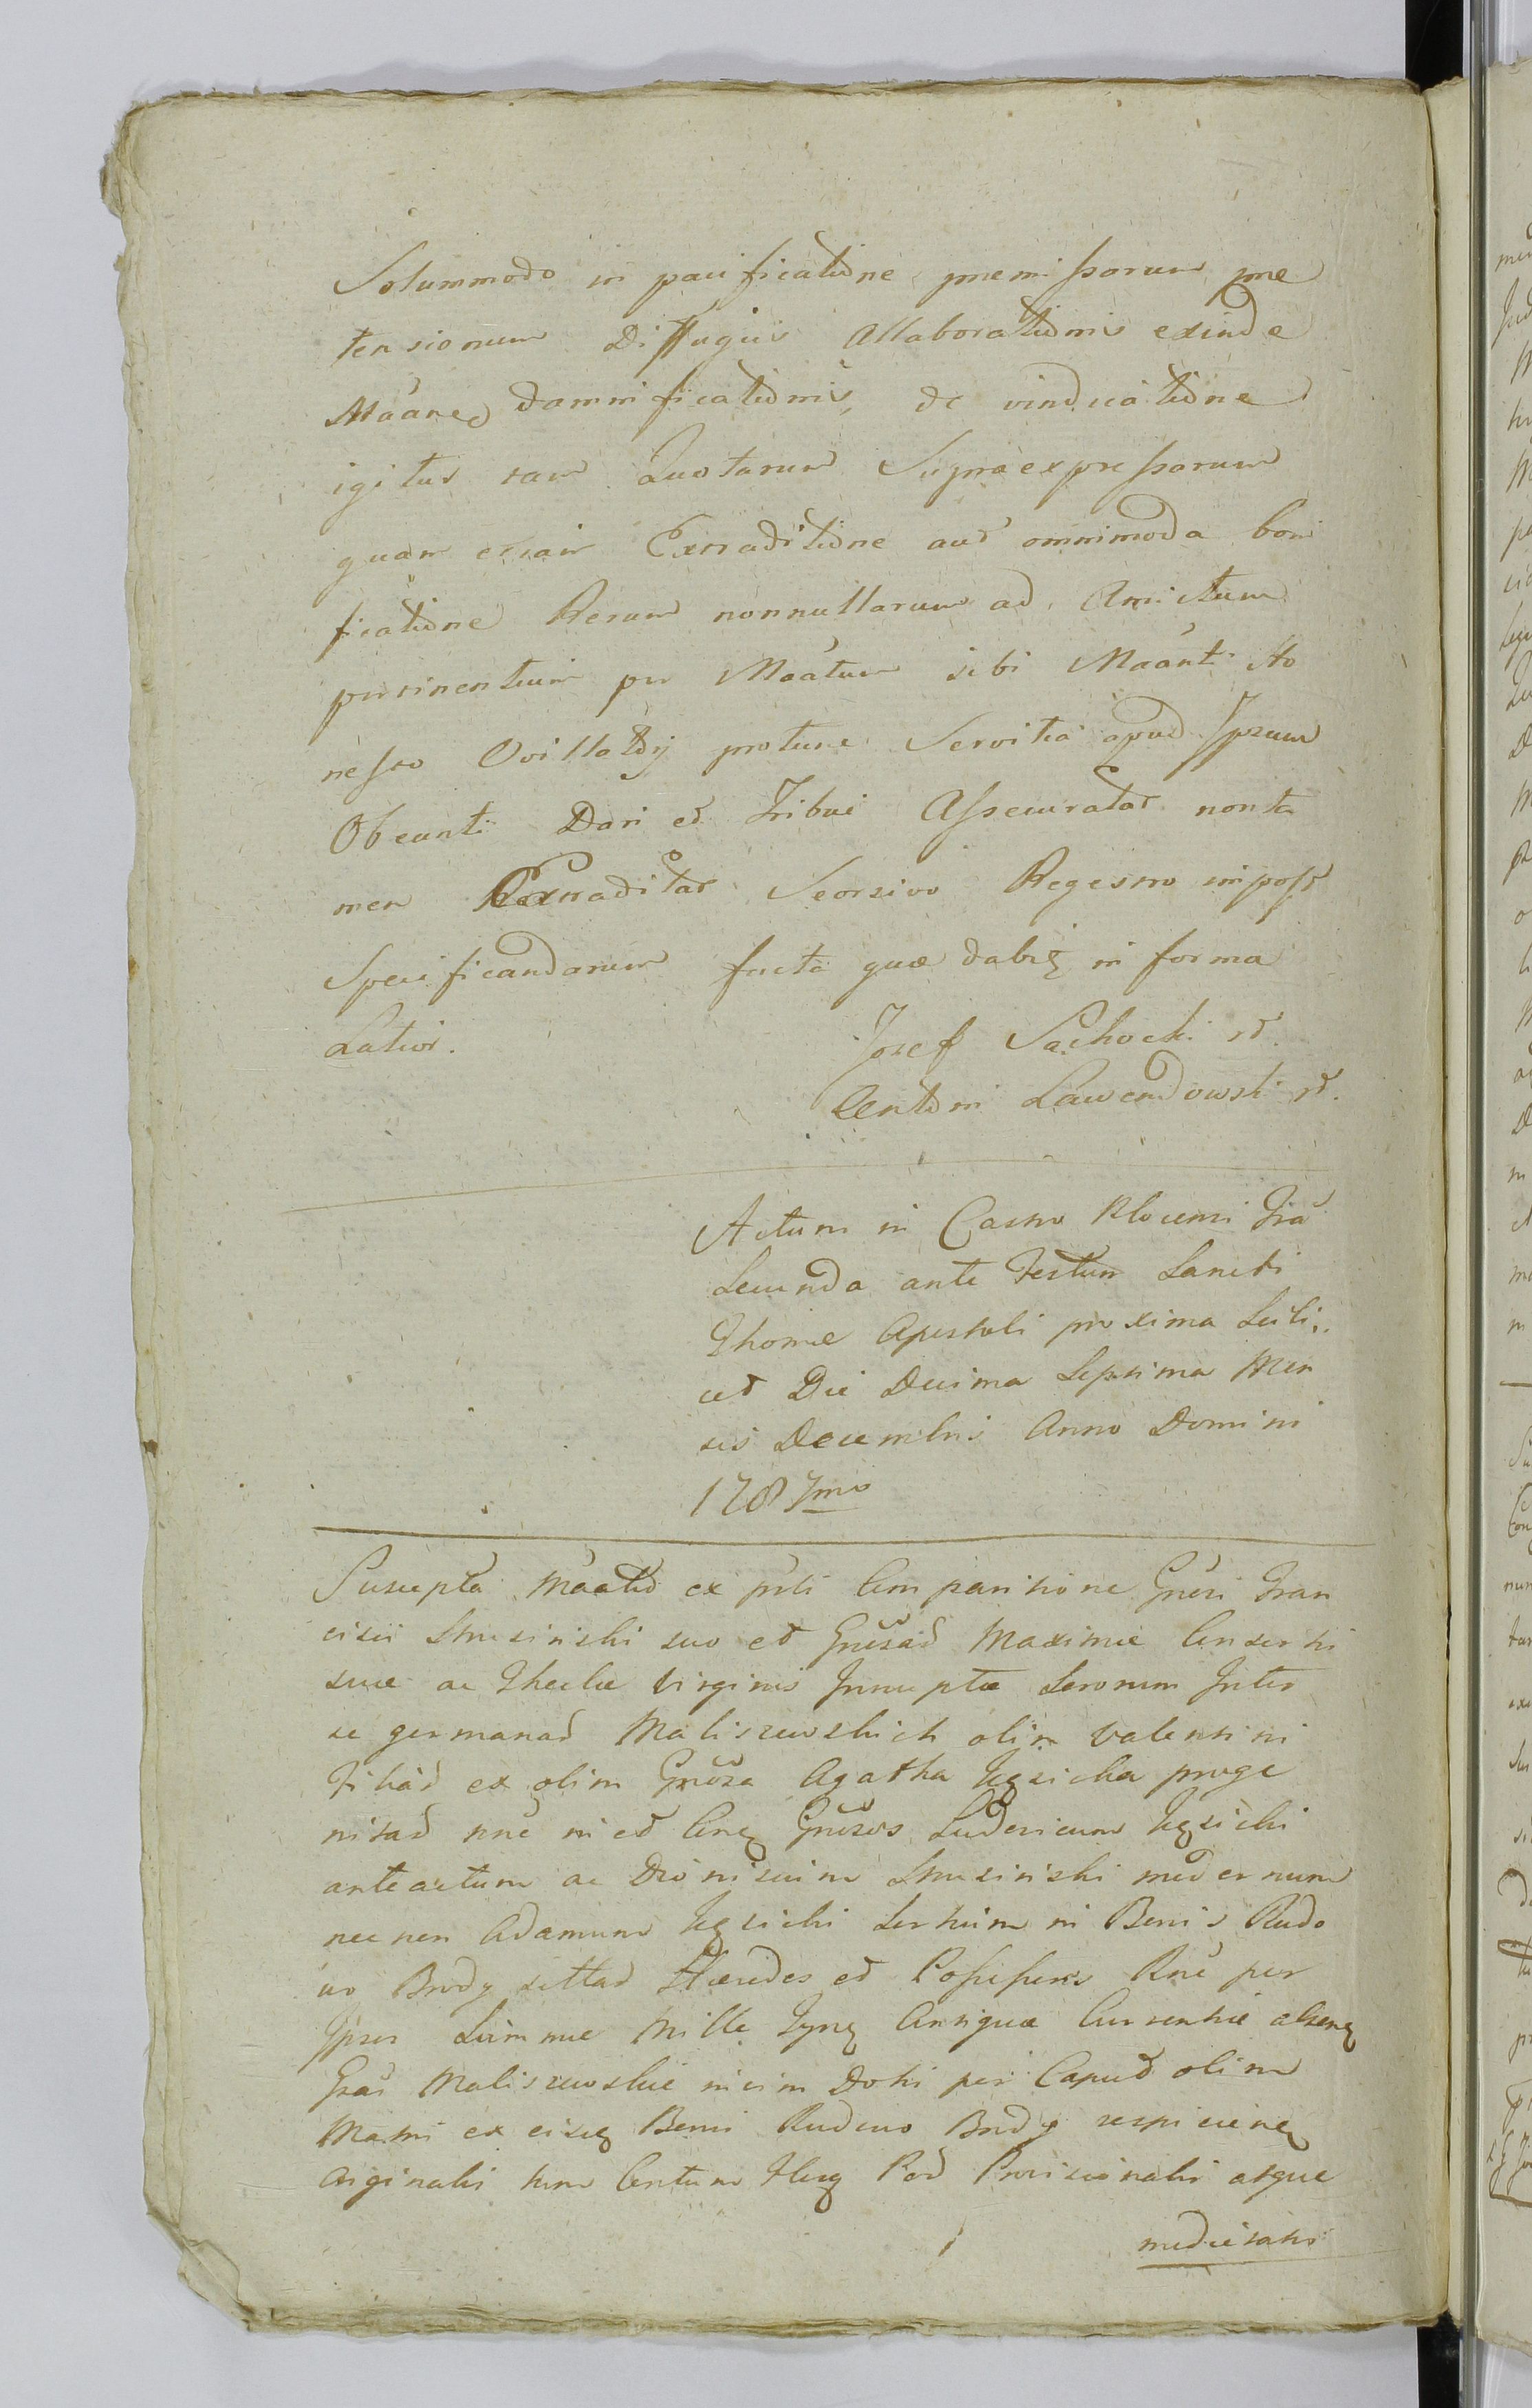 Solummodo in pacificatione premissorum prae
tensionum Diffugiis Allaborationis exinde
Máanes damnificationis, de vindicatione
igitur tam Quotarum Supraexpressarum
quam etiam Extraditione aut omnimoda boni
ficatione Rerum nonnullarum ad Amictum
pertinentium per Máatum sibi Máanti Ho
nesto protunc Servitia apud Ipsum
Obeunti Dari et Tribui Assecuratar nonta
men Extraditar Seorsivo Regestro impost
Specificandarum facta quae dabit in forma
Latior.
Josef Sachocki
Antoni Lawendowski
Actum in Castro Plocensi Fria
Secunda ante Festum Sancti
Thomae Apostoli proxima Scili..
cet Die Decima Septima Men
sis Decembris Anno Domini
1787mo
Suscepta Máatio ex Comparitione Gnosi Fran
cisci suo et Gnosae Maximae Consorti
suae ac Theclae Virginis Innuptae Sororum Inter
se germanar Maliszewskich olim Valentini
Filiar ex olim Gnosa Agatha proge
nitar in et Gnosos Ludovicum
anteactum ac Dionisium modernum
nec non Adamum in Bonis Rudo
wo Brody sittar Haeredes et Possessores per
Ipsos Summae Mille Antiquae Currentiae
Maliszewskie vicim Dotis per Caput olim
Matri ex Bonis Rudowo Brody
originalis tum Centum Pol Provisionalis atque
medietatis